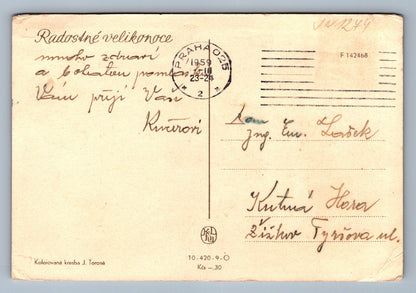 Radostné velikonoce
mnoho zdraví
a bohatou pomlázku
Vám přejí Vaši
Kučerovi
PRAHA 025
1959
-III
23-24
2
F 142468
Ing. Em. Lašek
Kutná Hora
Žižkov Tyršova ul.
Kolorovaná kresba J. Tarová
10-420-9-Ö
Kčs -,30